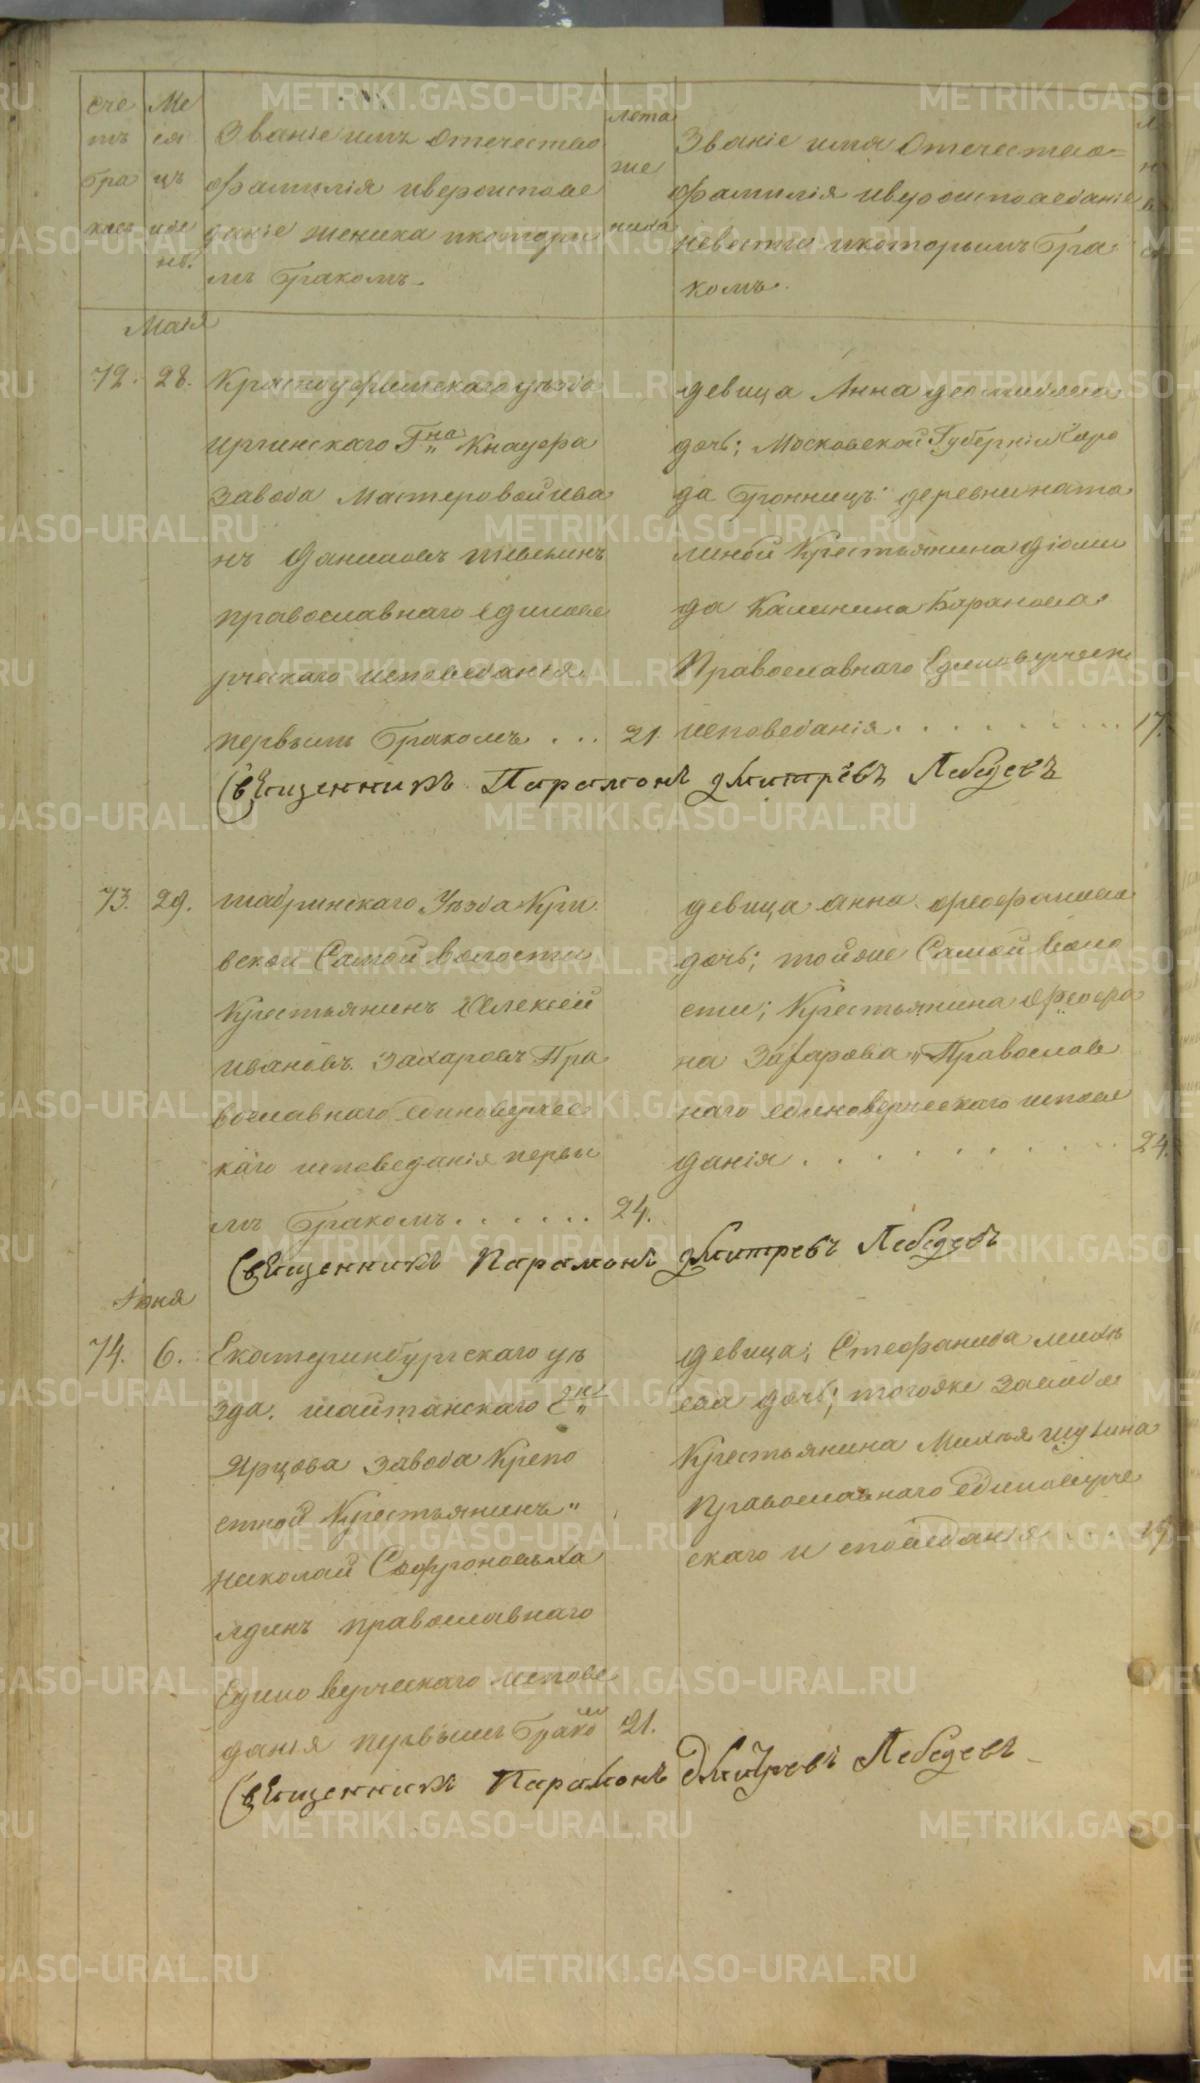 Сче Ме
тъ ся
бра цъ
ковъ иде
нь.
Званіе имъ Отечество
фамилія ивероиспове
даніе жениха икоторы
мъ бракомъ.
лета
же
ниха
Званіе имя Отечество=
фамилія ивероисповеданіе
невесты икоторымъ бра
комъ.
Маія
72. 28. Красноуфимскаго уезда
иргинскаго Гна Кнауфа
завода мастеровой ива
нъ Даниловъ
православнаго единове
рческаго исповеданія
первымъ бракомъ . . . 21.
девица Анна
дочь; Московской Губерніи Горо
да Бронницъ: деревни
Крестьянина Діоми
да Калинина Баранова:
Православнаго Единоверческ
исповеданія. . . . . . . . . 17.
Священникъ Парамонъ Дмитрѣвъ Лебедевъ
73. 29. шадринскаго Уезда Кри
вской Самой волости
Крестьянинъ Алексей
ивановъ. Захаровъ Пра
вославнаго Единоверчес
каго исповеданія первы
мъ бракомъ. . . . . . 24.
девица анна феофанова
дочь; тойже Самой воло
сти; Крестьянина Феофа
на Захарова Православ
наго единоверческаго испове
данія . . . . . . . . . . 24.
Священникъ Парамонъ Дмитревъ Лебедевъ
Іюня
74. 6. Екатеринбургскаго уе
зда. шайтанскаго
Ярцова завода Крепо
стной Крестьянинъ"
николай Софроновъ ха
лдинъ православнаго
Единоверческаго испове
данія первымъ бракомъ 21.
девица; Стефанида михе
ева дочь; тогоже завода
Крестьянина Михея
Православнаго Единоверче
скаго исповеданія . . . 19
Священникъ Парамонъ Дмитревъ Лебедевъ
METRIKI.GASO-URAL.RU